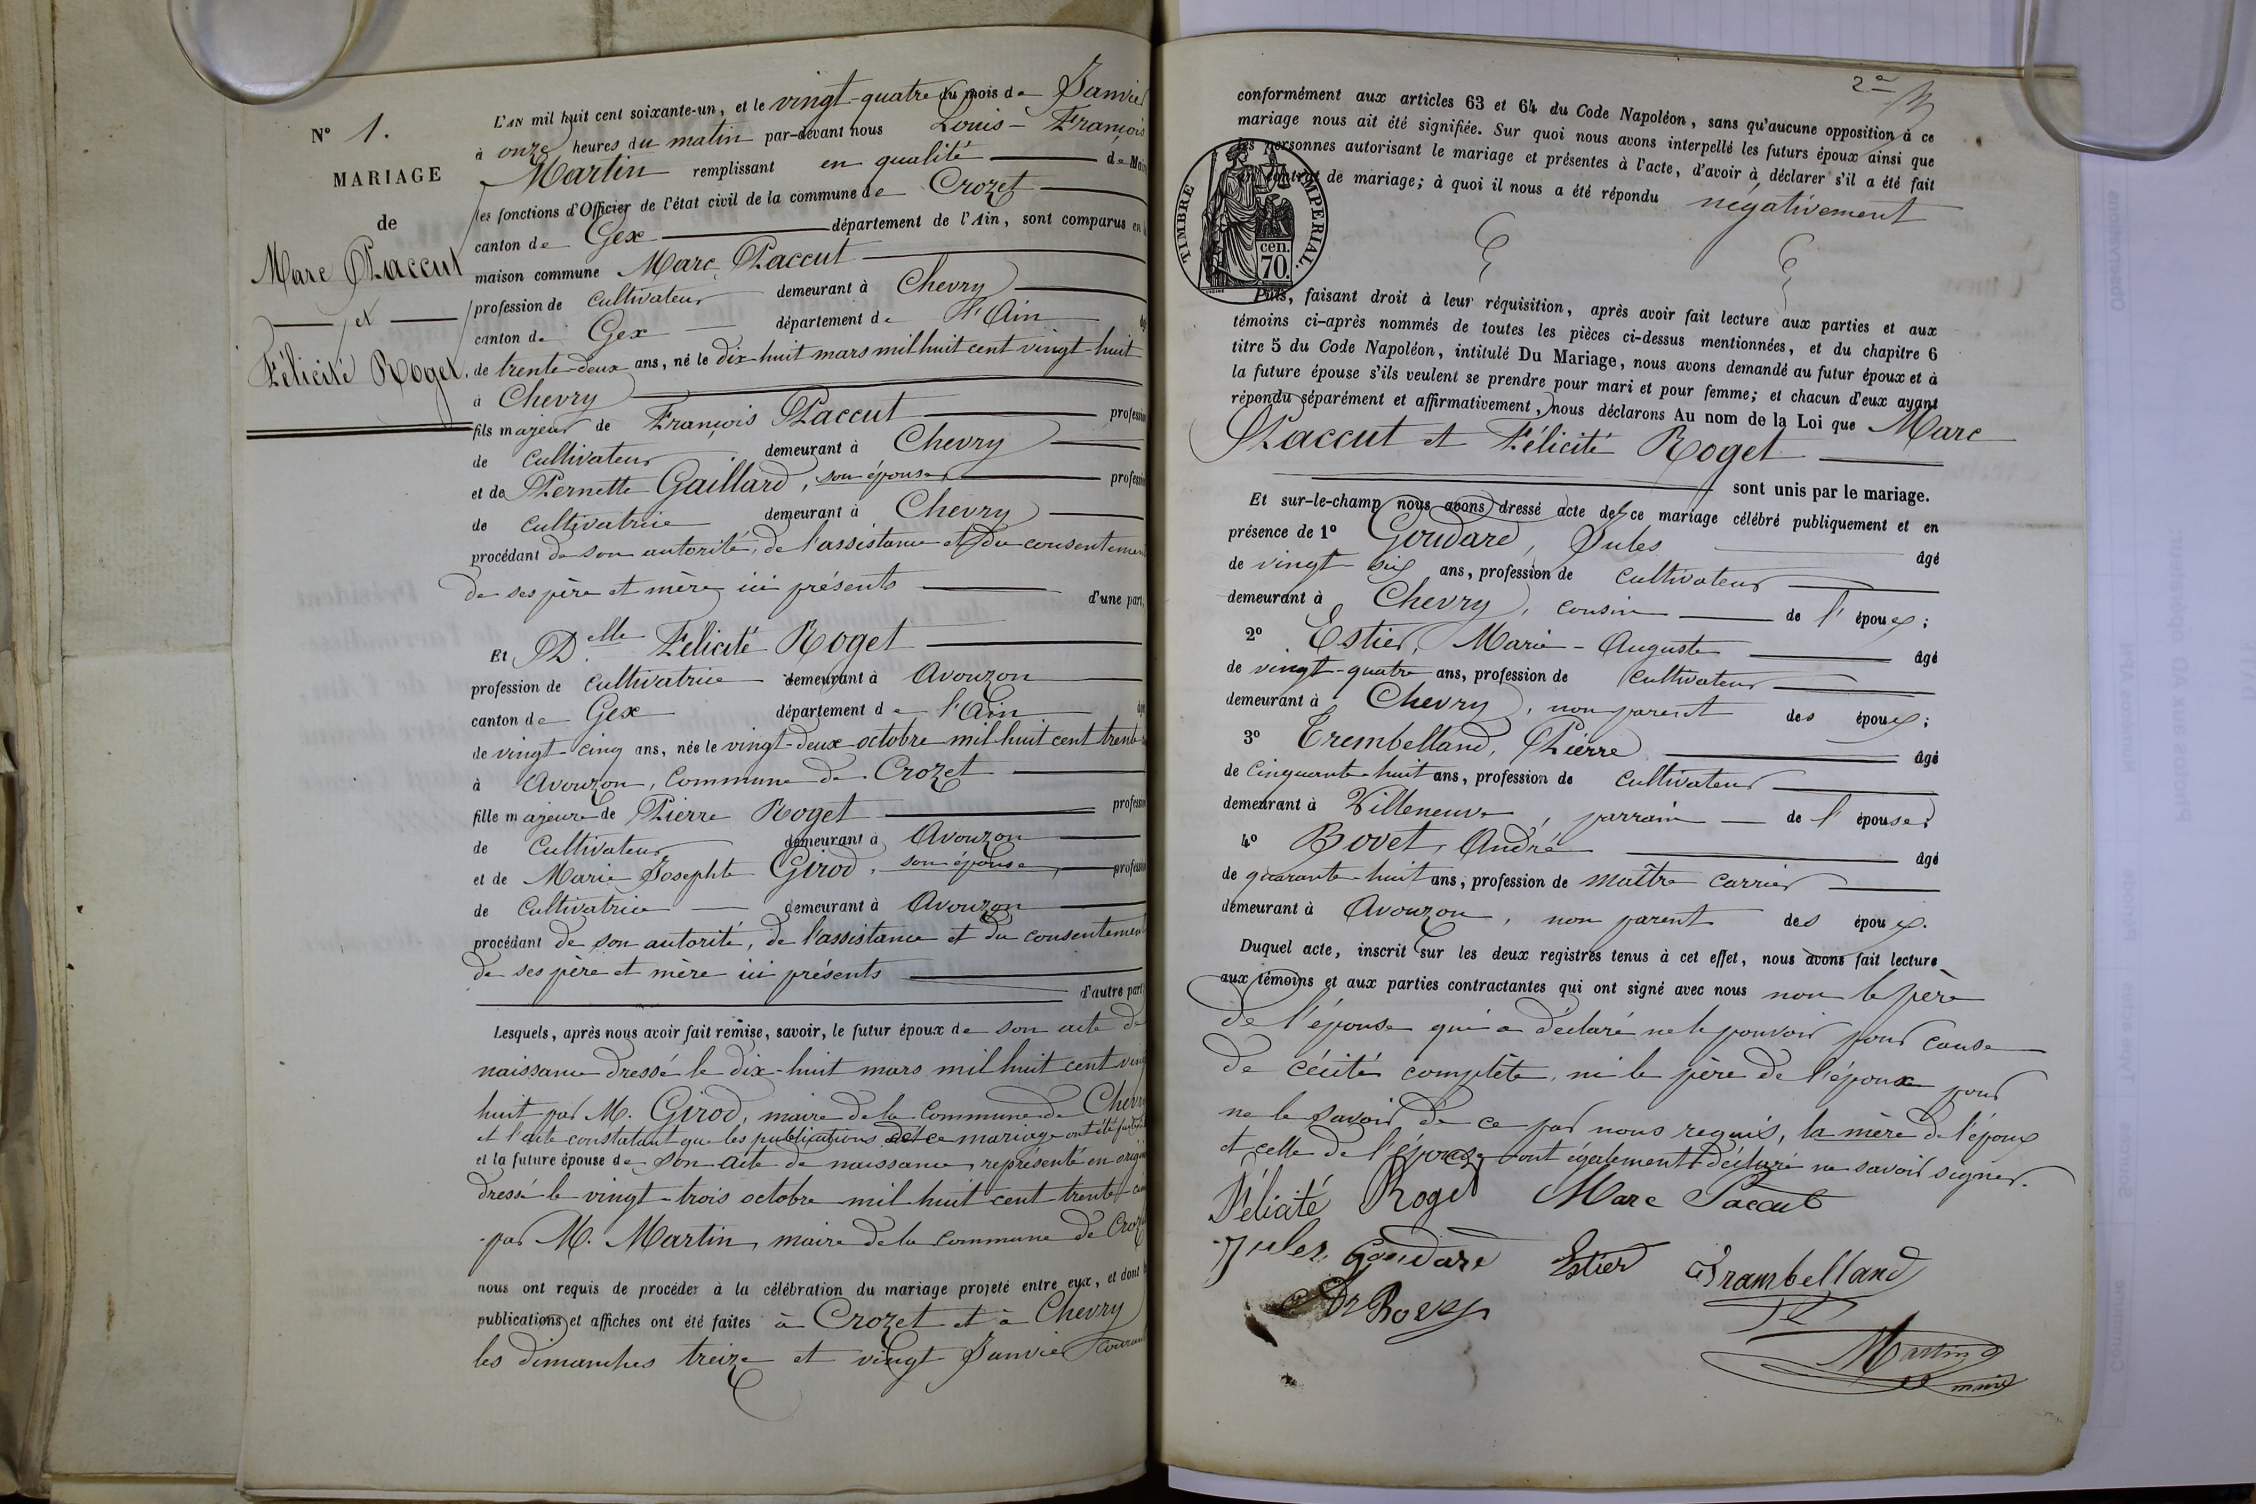 N° 1.
MARIAGE
de
Marc Paccut
et
Félicité Roget.
L'AN mil huit cent soixante-un, et le vingt-quatre du mois de Janvier
à onze heures du matin par-devant nous Louis-François
Martin remplissant en qualité de Maire
les fonctions d'Officier de l'état civil de la commune de Crozet
canton de Gex département de l'Ain, sont comparus en la
maison commune Marc Paccut
profession de cultivateur demeurant à Chevry
canton de Gex département de l'Ain âgé
de trente-deux ans, né le dix-huit mars mil huit cent vingt-huit
à Chevry
fils majeur de François Paccut profession
de cultivateur demeurant à Chevry
et de Pernette Gaillard, son épouse, profession
de cultivatrice demeurant à Chevry
procédant de son autorité, de l'assistance et du consentement
de ses père et mère ici présents d'une part,
Et Delle Félicité Roget
profession de cultivatrice demeurant à Avouzon
canton de Gex département de l'Ain âgée
de vingt-cinq ans, née le vingt-deux octobre mil huit cent trente
à Avouzon, commune de Crozet
fille majeure de Pierre Roget profession
de Cultivateur demeurant à Avouzon
et de Marie Josephte Girod, son épouse, profession
de Cultivatrice demeurant à Avouzon
procédant de son autorité, de l'assistance et du consentement
de ses père et mère ici présents
d'autre part
Lesquels, après nous avoir fait remise, savoir, le futur époux de son acte de
naissance dressé le dix-huit mars mil huit cent vingt
huit par M. Girod, maire de la Commune de Chevry
et l'acte constatant que les publications de ce mariage ont été faites
et la future épouse de son acte de naissance, représenté en original
dressé le vingt-trois octobre mil huit cent trente-cinq
par M. Martin, maire de la commune de Crozet
nous ont requis de procéder à la célébration du mariage projeté entre eux, et dont les
publications et affiches ont été faites à Crozet et à Chevry
les dimanches treize et vingt Janvier courant
2e
conformément aux articles 63 et 64 du Code Napoléon, sans qu'aucune opposition à ce
mariage nous ait été signifiée. Sur quoi nous avons interpellé les futurs époux ainsi que
les personnes autorisant le mariage et présentes à l'acte, d'avoir à déclarer s'il a été fait
un contrat de mariage; à quoi il nous a été répondu négativement
TIMBRE IMPERIAL.
cen.
70.
Puis, faisant droit à leur réquisition, après avoir fait lecture aux parties et aux
témoins ci-après nommés de toutes les pièces ci-dessus mentionnées, et du chapitre 6
titre 5 du Code Napoléon, intitulé Du Mariage, nous avons demandé au futur époux et à
la future épouse s'ils veulent se prendre pour mari et pour femme; et chacun d'eux ayant
répondu séparément et affirmativement, nous déclarons Au nom de la Loi que Marc
Paccut et Félicité Roget
sont unis par le mariage.
Et sur-le-champ nous avons dressé acte de ce mariage célébré publiquement et en
présence de 1° Goudard, Jules âgé
de vingt six ans, profession de cultivateur
demeurant à Chevry, cousin de l'époux;
2° Estier, Marie-Auguste âgé
de vingt-quatre ans, profession de cultivateur
demeurant à Chevry, non parent des époux;
3° Trembelland, Pierre âgé
de cinquante-huit ans, profession de cultivateur
demeurant à Villeneuve, parrain de l'épouse;
4° Bovet, André âgé
de quarante-huit ans, profession de maître carrier
demeurant à Avouzon, non parent des époux.
Duquel acte, inscrit sur les deux registres tenus à cet effet, nous avons fait lecture
aux témoins et aux parties contractantes qui ont signé avec nous non le père
de l'épouse qui a déclaré ne le pouvoir pour cause
de cécité complète, ni le père de l'époux pour
ne le savoir de ce par nous requis, la mère de l'époux
et celle de l'épouse ont également déclaré ne savoir signer.
Félicité Roget Marc Pacout
Jules Goudard Estier Trambelland
Martin
maire